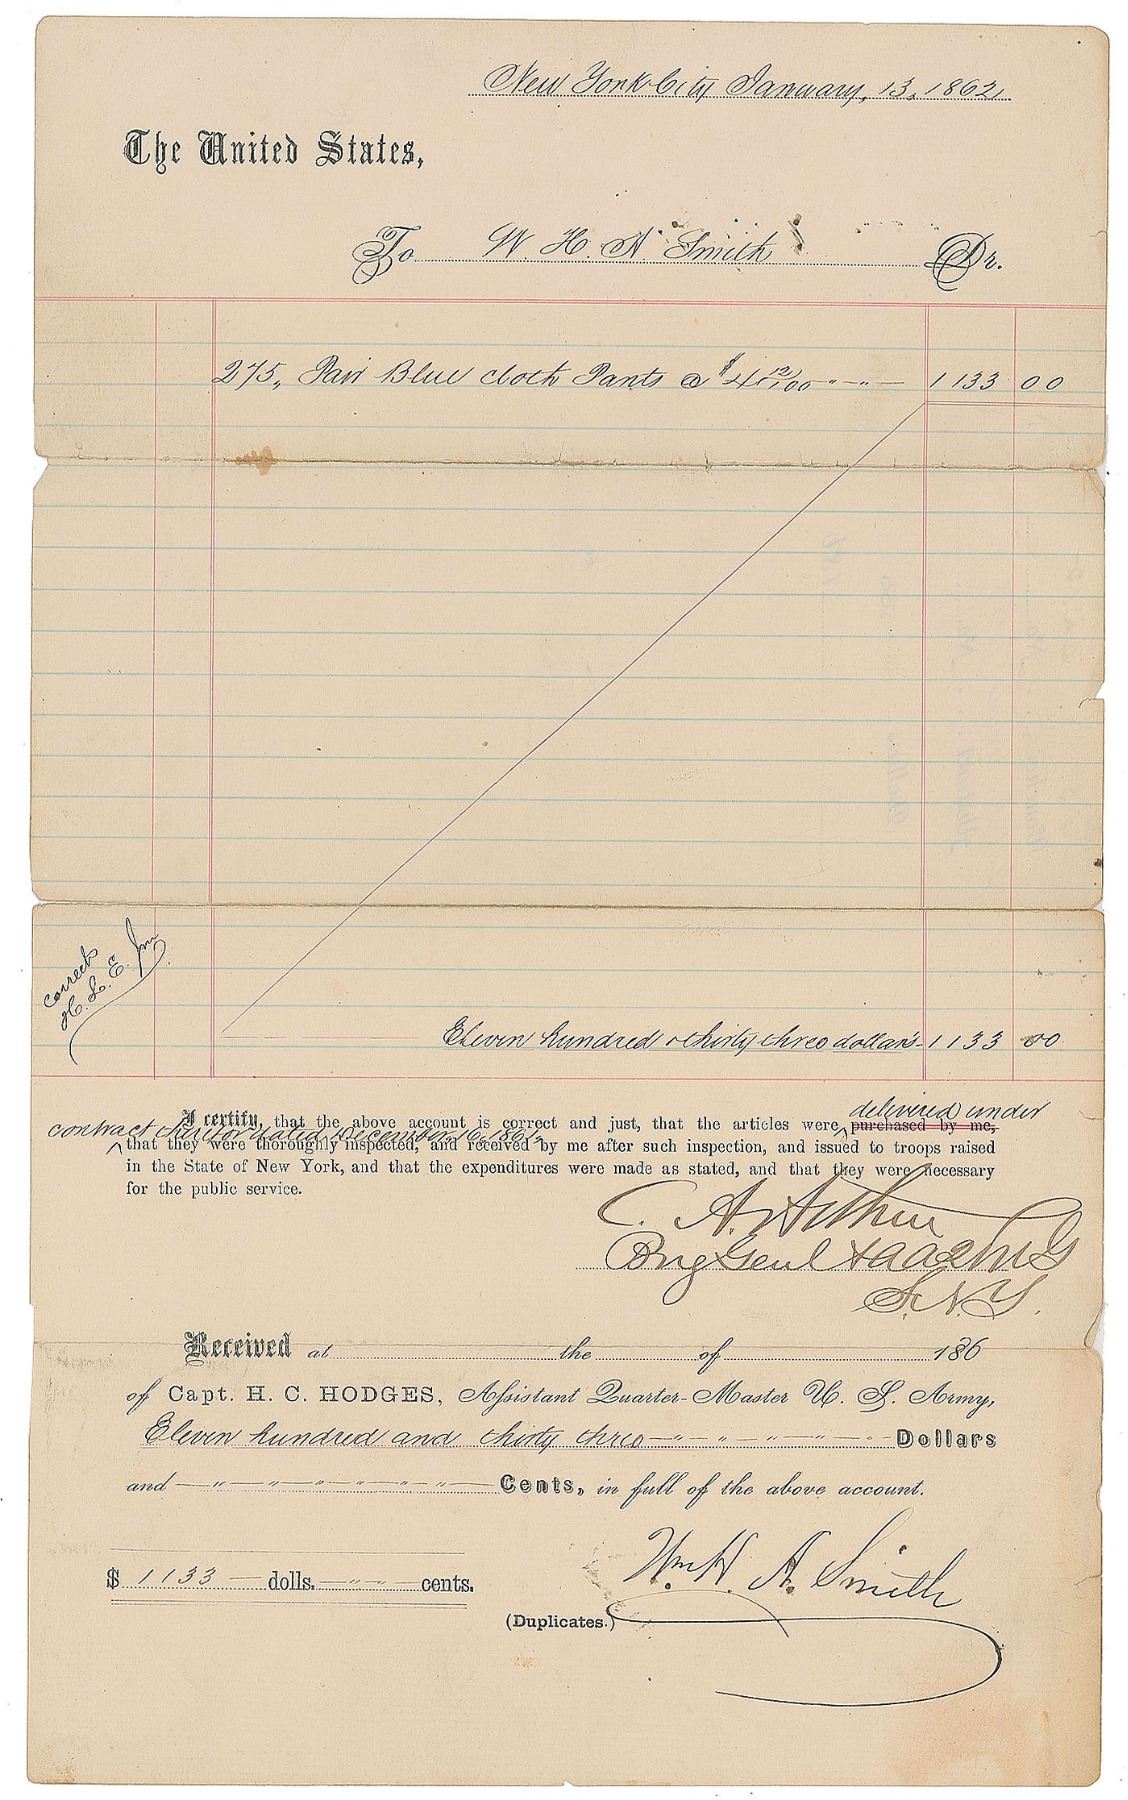 New York City January, 13, 1862
The United States,
To W. H. A Smith Dr.
275, Pair Blue cloth Pants @ $4 12/100 " — " — 1133 00
Correct
H. L. E.
Eleven hundred & thirty three dollars 1133 00
delivered under
I certify, that the above account is correct and just, that the articles were purchased by me,
contract dated December 16, 1861,
that they were thoroughly inspected, and received by me after such inspection, and issued to troops raised
in the State of New York, and that the expenditures were made as stated, and that they were necessary
for the public service.
C. A. Arthur
Brig Genl & a a QMG
S. N. Y.
Received at the of 186
of Capt. H. C. HODGES, Assistant Quarter-Master U. S. Army,
Eleven hundred and thirty three — " — " — " — " — Dollars
and — " — " — " — " — " — " — Cents, in full of the above account.
$ 1133 — dolls. — " — " — cents.
Wm H. A. Smith
(Duplicates.)